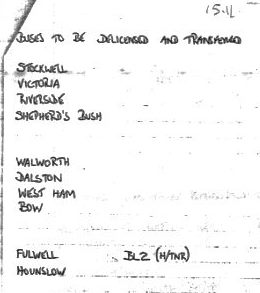 15.11
BUSES TO BE DELICENSED AND TRANSFERRED
STOCKWELL
VICTORIA
RIVERSIDE
SHEPHERD'S BUSH
WALWORTH
DALSTON
WEST HAM
BOW
FULWELL BL2 (H/TNR)
HOUNSLOW